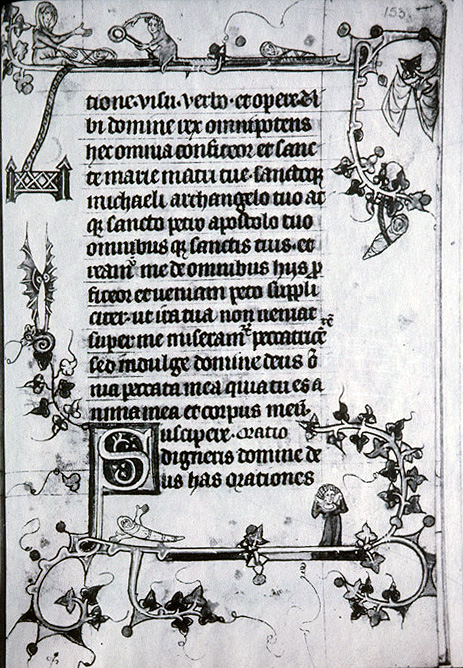 153
tione. visu. verbo. et opere. ti
bi domine rex omnipotens
hec omnia confiteor et sanc
te marie matri tue. sanctoqꝫ
michaeli archangelo tuo at
qꝫ sancto petro apostolo tuo
omnibus qꝫ sanctis tuis. et
me de omnibus hijs ꝓ
fiteor et veniam peto suppli
citer. ut ira tua non veniat
super me miseram peccatricē
sed indulge domine deus ō
nia peccata mea quia tu es a
nima mea et corpus meū.
Suscipere. oratio
digneris domine de
us has orationes